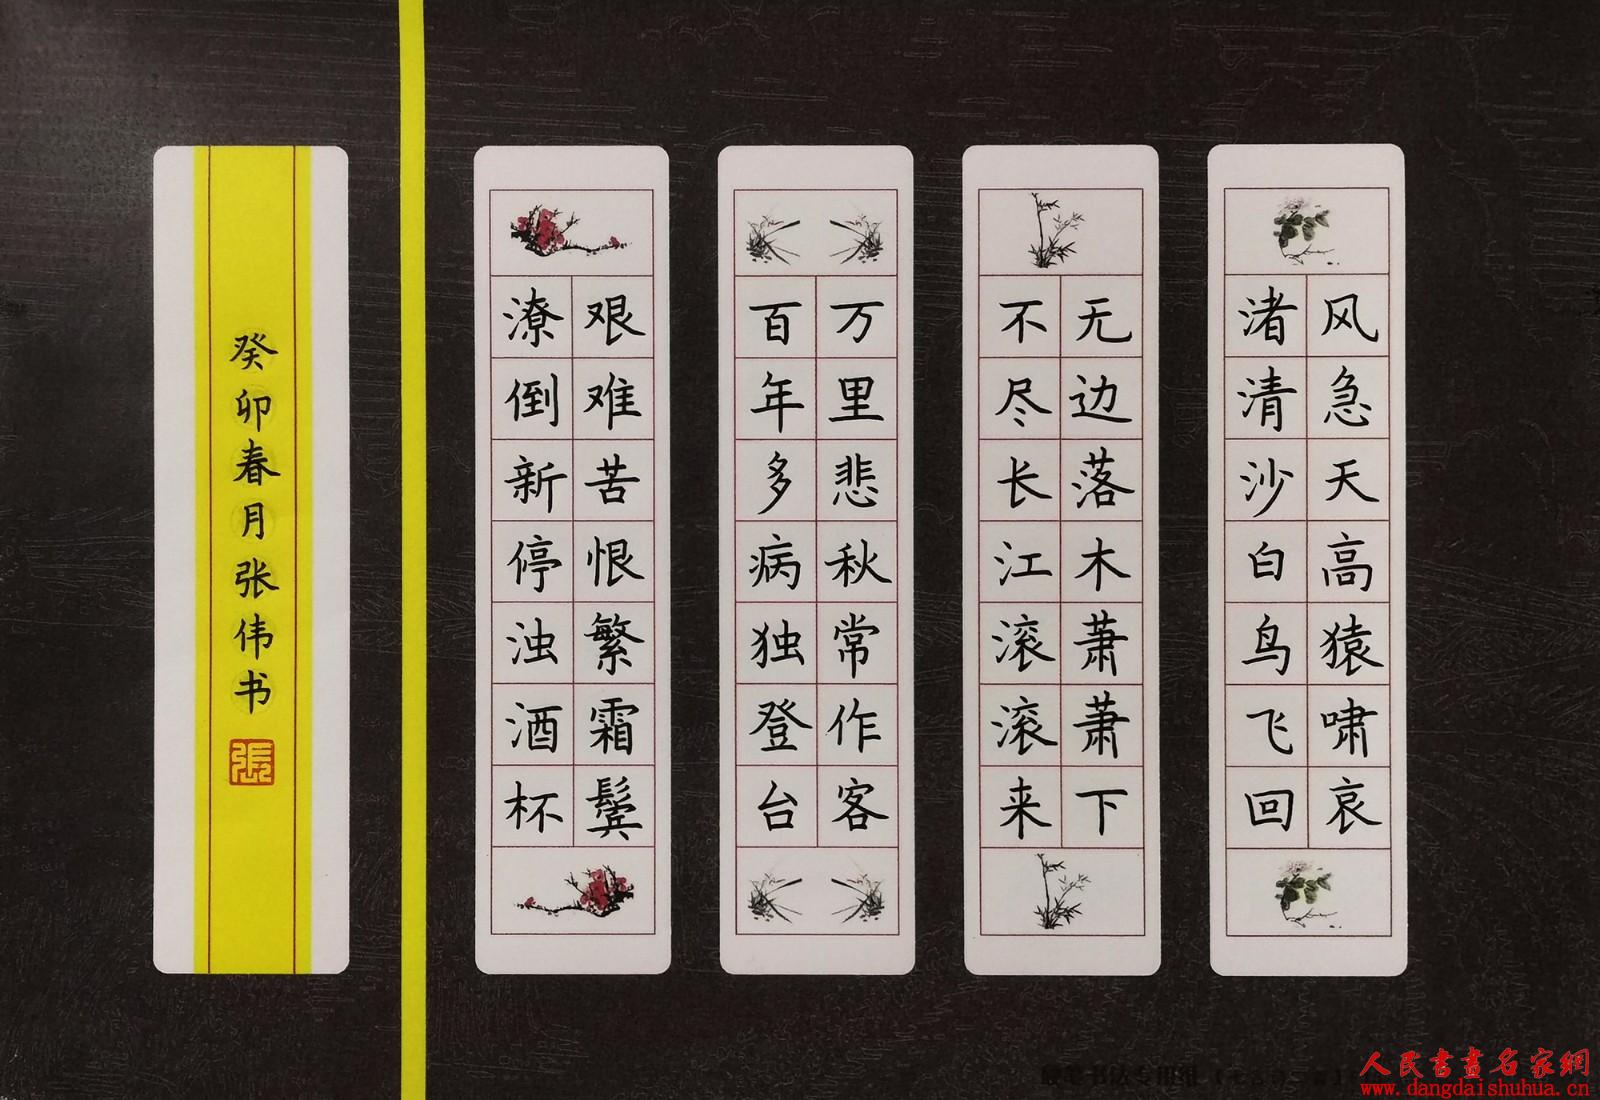 风急天高猿啸哀
渚清沙白鸟飞回
无边落木萧萧下
不尽长江滚滚来
万里悲秋常作客
百年多病独登台
艰难苦恨繁霜鬓
潦倒新停浊酒杯
癸卯春月张伟书
張
人民書畫名家網
www.dangdaishuhua.cn